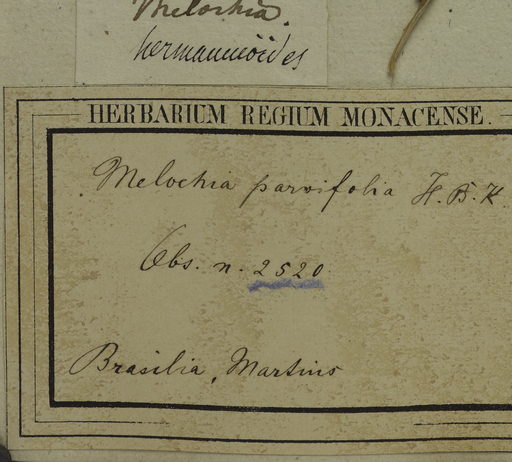 Melochia.
hermannioides
HERBARIUM REGIUM MONACENSE.
Melochia parvifolia H. B. K
Obs. n. 2520.
Brasilia, Martius